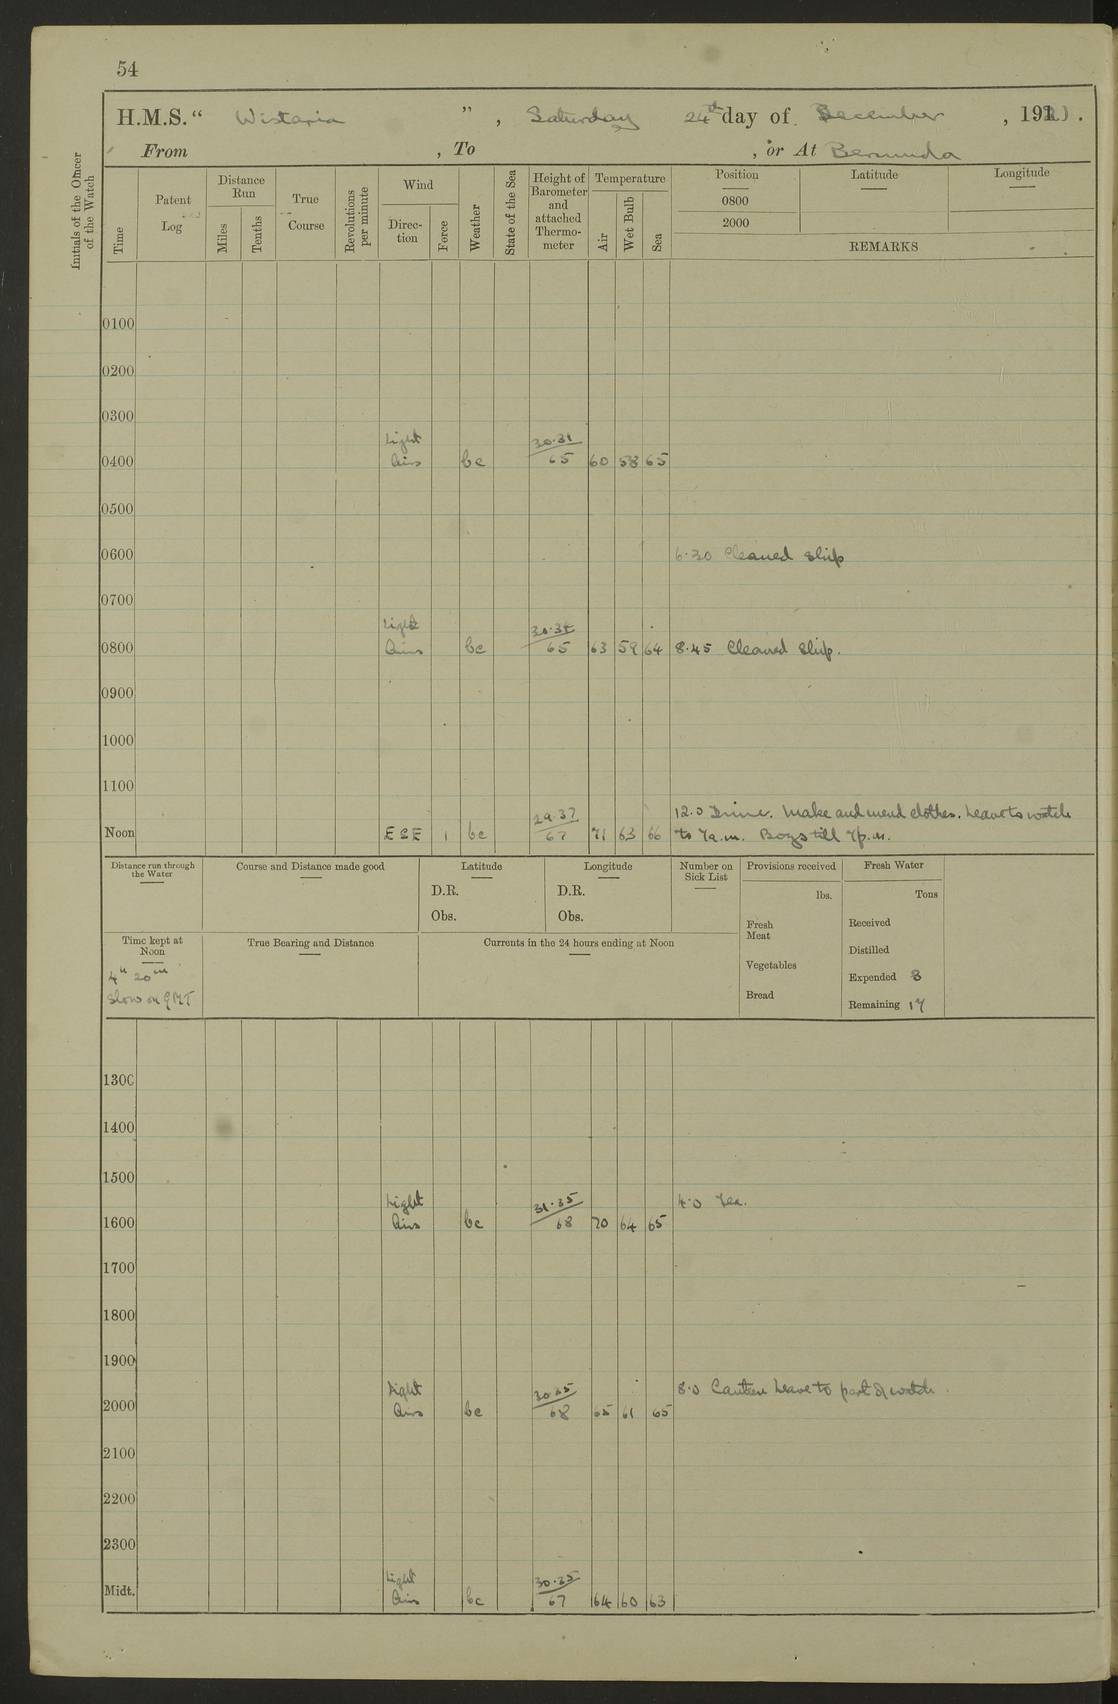 54
H.M.S. " Wistaria ", Saturday 24th day of December, 1921.
From , To , or At Bermuda
Initials of the Officer of the Watch
Time
Patent Log
Distance Run
Miles
Tenths
True Course
Revolutions per minute
Wind
Direction
Force
Weather
State of the Sea
Height of Barometer and attached Thermometer
Temperature
Air
Wet Bulb
Sea
Position Latitude Longitude
0800
2000
REMARKS
0100
0200
0300
0400 Light Airs bc 30.31 65 60 58 65
0500
0600 6.30 Cleaned ship
0700
0800 Light Airs bc 30.34 65 63 59 64 8.45 Cleaned ship.
0900
1000
1100
12.0 Make and mend clothes. Leave to watch
Noon ESE 1 bc 29.37 67 71 63 66 to 7a.m. Boys till 7p.m.
Distance run through the Water
Course and Distance made good
Latitude
D.R.
Obs.
Longitude
D.R.
Obs.
Number on Sick List
Provisions received
lbs.
Fresh Meat
Vegetables
Bread
Fresh Water
Tons
Received
Distilled
Expended 8
Remaining 17
Time kept at Noon
4h 20m
Slow on GMT
True Bearing and Distance
Currents in the 24 hours ending at Noon
1300
1400
1500
4.0 Tea.
1600 Light Airs bc 31.35 68 70 64 65
1700
1800
1900
8.0 Canteen Leave to part of watch.
2000 Light Airs bc 68 65 61 65
2100
2200
2300
Midt. Light Airs bc 30.35 67 64 60 63